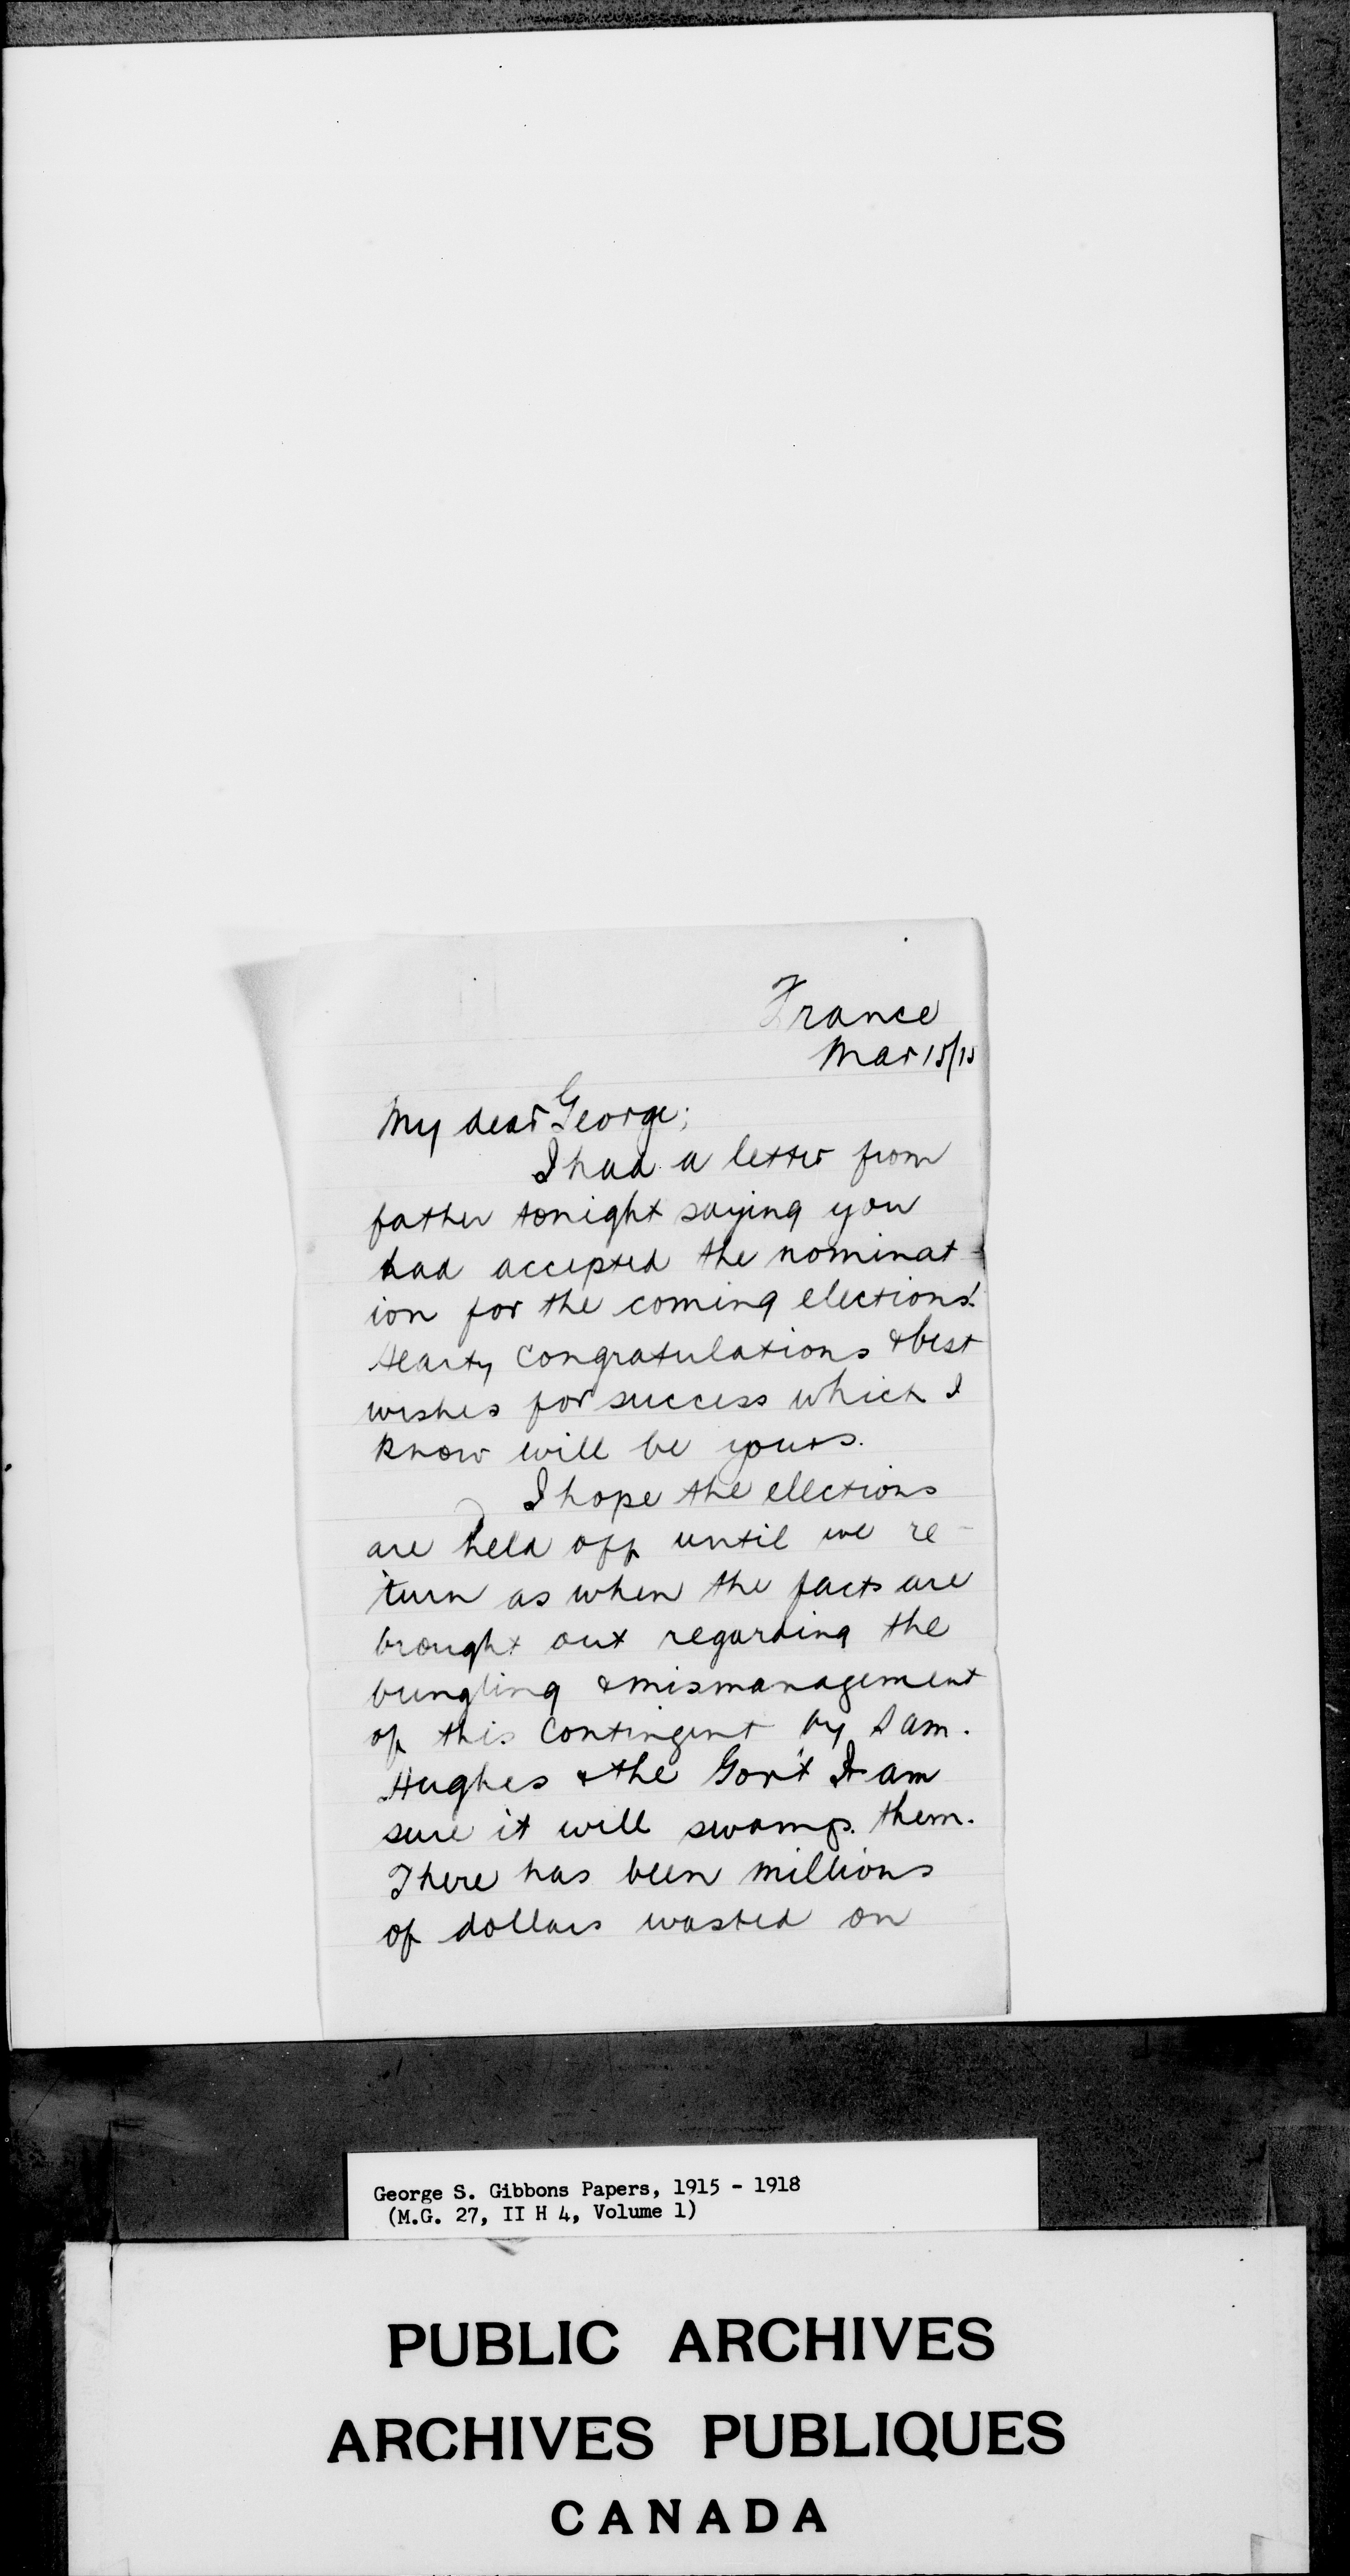 France
Mar 15/15
My dear George;
I had a letter from
father tonight saying you
had accepted the nominat-
ion for the coming elections.
Hearty Congratulations & best
wishes for success which I
know will be yours.
I hope the elections
are held off until we re-
turn as when the facts are
brought out regarding the
bungling & mismanagement
of this Contingent by Sam.
Hughes & the Gov't I am
sure it will swamp them.
There has been millions
of dollars wasted on
George S. Gibbons Papers, 1915 - 1918
(M.G. 27, II H 4, Volume 1)
PUBLIC ARCHIVES
ARCHIVES PUBLIQUES
CANADA